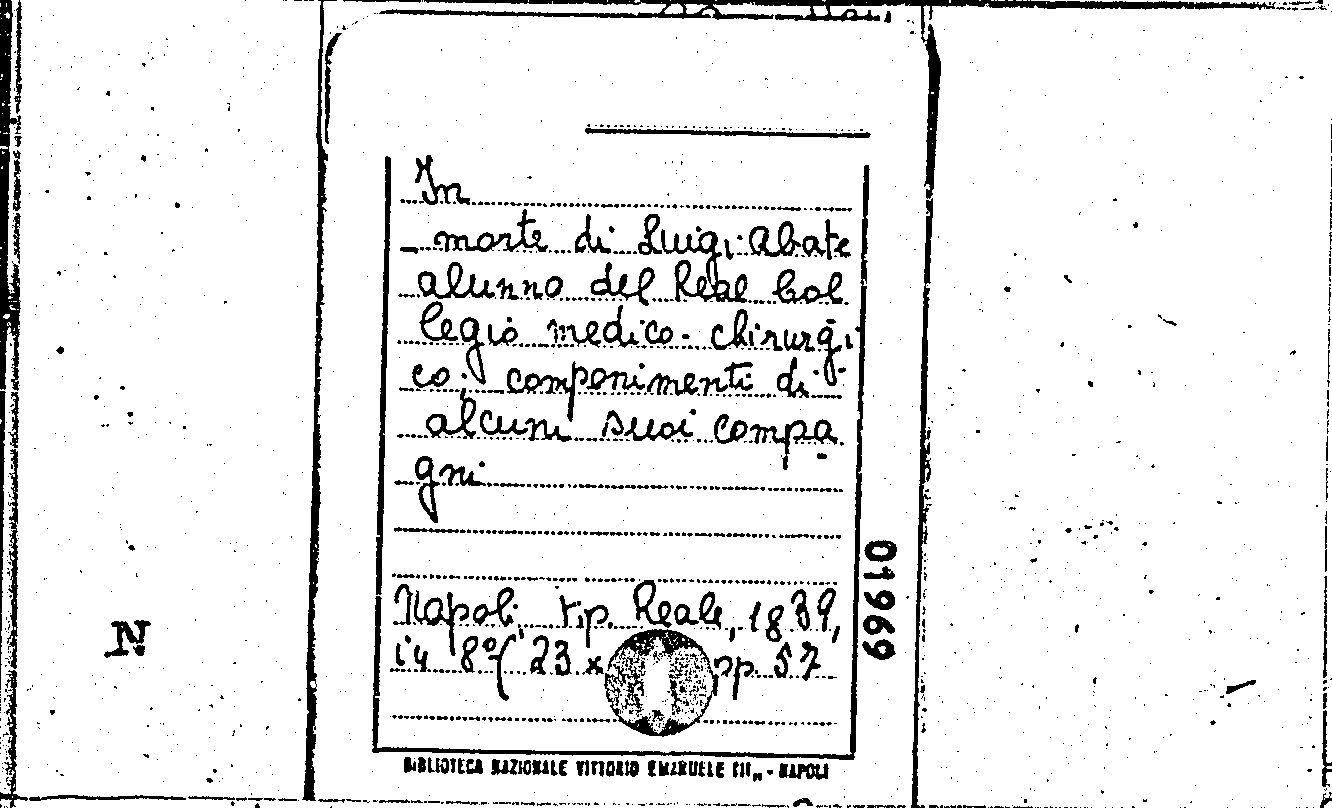 In
morte di Luigi Abate
alunno del Real Col
legio medico-chirurgi
co; componimenti di
alcuni suoi compa
gni
Napoli, tip. Reale, 1839,
in 8°( 23 x pp. 57
01969
N
BIBLIOTECA NAZIONALE VITTORIO EMANUELE III„ - NAPOLI